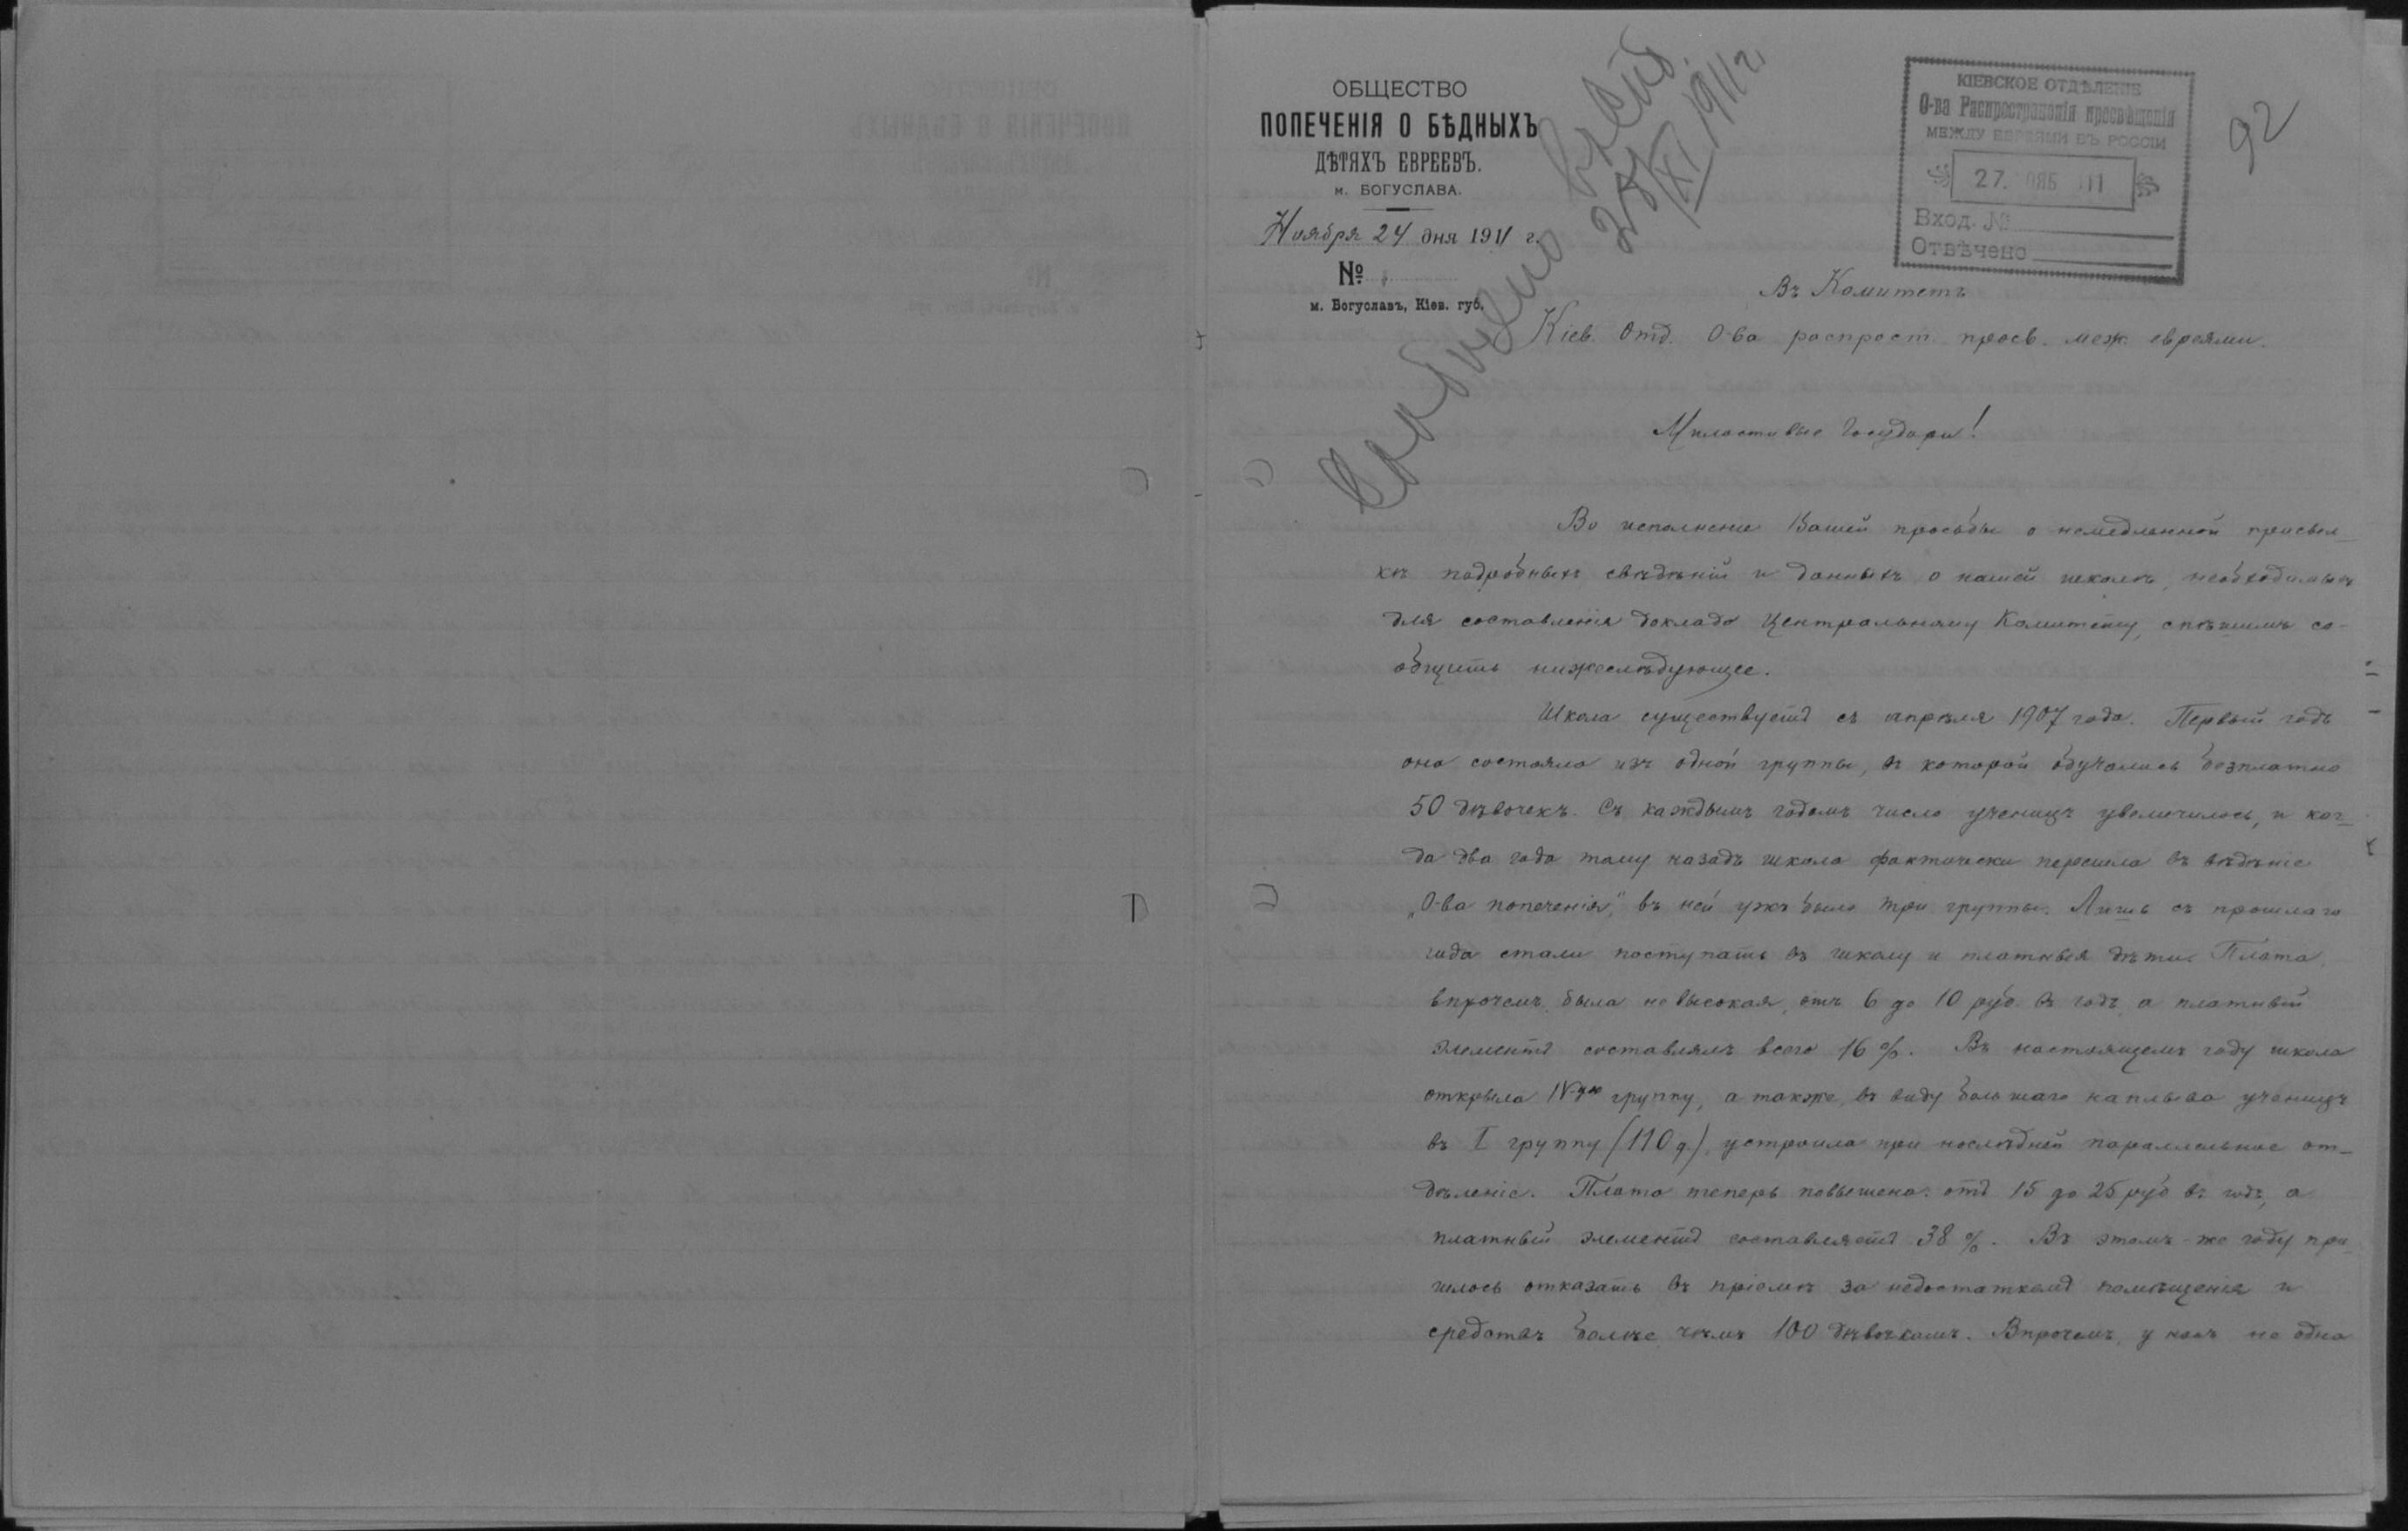 ОБЩЕСТВО
ПОПЕЧЕНІЯ О БѢДНЫХЪ
ДѢТЯХЪ ЕВРЕЕВЪ.
м. БОГУСЛАВА.
Ноября 24 дня 1911 г.
№
м. Богуславъ, Кіев. губ.
Сообщено
28/XI 1911 г.
КІЕВСКОЕ ОТДѢЛЕНІЕ
О-ва Распространенія просвѣщенія
МЕЖДУ ЕВРЕЯМИ ВЪ РОССІИ
27. НОЯБ 1911
Вход. №
Отвѣчено
92
Въ Комитетъ
Кіев. Отд. О-ва распрост. просв. меж. евреями.
Милостивые Государи!
Во исполненіе Вашей просьбы о немедленной присыл-
кѣ подробныхъ свѣдѣній и данныхъ о нашей школѣ, необходимыхъ
для составленія доклада Центральному Комитету, спѣшимъ со-
общить нижеслѣдующее.
Школа существуетъ съ апрѣля 1907 года. Первый годъ
она состояла изъ одной группы, въ которой обучались безплатно
50 дѣвочекъ. Съ каждымъ годомъ число ученицъ увеличилось, и ког-
да два года тому назадъ школа фактически перешла въ вѣдѣніе
„О-ва попеченія", въ ней ужъ было три группы. Лишь съ прошлаго
года стали поступать въ школу и платныя дѣти. Плата,
впрочемъ, была не высокая, отъ 6 до 10 руб. въ годъ, а платный
элементъ составлялъ всего 16 %. Въ настоящемъ году школа
открыла IV-ую группу, а также, въ виду большаго наплыва ученицъ
въ I группу (110 д.), устроила при послѣдней параллельное от-
дѣленіе. Плата теперь повышена: отъ 15 до 25 руб въ годъ, а
платный элементъ составляетъ 38 %. Въ этомъ-же году при-
шлось отказать въ пріемѣ за недостаткомъ помѣщенія и
средствъ болѣе чѣмъ 100 дѣвочкамъ. Впрочемъ, у насъ не одна